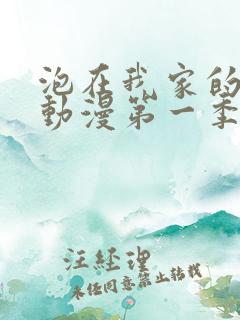 泡在我家的
動漫第一季
汪経理
未任同意禁止轉載